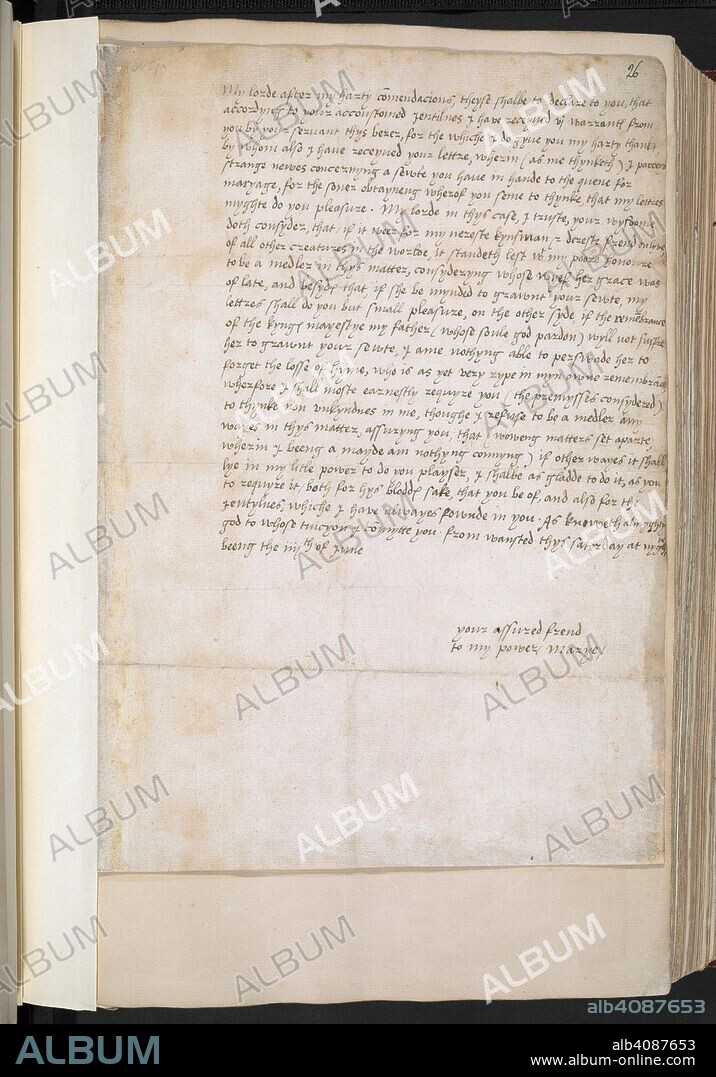 26
My lorde after my harty cōmendacions, theyse shalbe to declare to you, that
accordyng to your accoustomed jentilnes I have receyved vj warrantꝭ from
you by your servant thys berer, for the whiche I do gyve you my harty thankꝭ
by whom also I have receyved your lettre, wherin (as me thynketh) I perceve
strange newes concernyng a sewte you have in hande to the quene for
maryage, for the soner obtayneng wherof you seme to thynke, that my lettres
myghte do you pleasure. My lorde in thys case, I truste, your wysdome
doth consyder, that if it wer for my nereste kynsman & dereste frend on lyve
of all other creatures in the worlde, it standeth lest wt my poore honoure
to be a medler in thys matter, consyderyng whose wyef her grace was
of late, and besydꝭ that if she be mynded to grawnt your sewte, my
lettres shall do you but small pleasure, on the other syde if the remembrance
of the kyngꝭ mayestye my father (whose soule god pardon) wyll not suffre
her to grawnt your sewte, I ame nothyng able to perswade her to
forget the losse of hyme, who is as yet very rype in myn owne remembrāce
wherfore I shall moste earnestly requyre you (the premysses consydered)
to thynke non unkyndnes in me, thoughe I refuse to be a medler any
wayes in thys matter, assuryng you, that (woweng matters set aparte
wherin I beeng a mayde am nothyng connyng) if other wayes it shall
lye in my litle power to do you playser, I shalbe as gladde to do it, as you
to requyre it, both for hys bloddꝭ sake, that you be of, and also for the
jentylnes, whiche I have alwayes fownde in you. As knoweth almyghty
god to whose tuicyon I cōmytte you. from wansted thys saterday at nyght
beeng the iiijth of June
your assured frend
to my power Marye
ALBUM
alb4087653
ALBUM
alb4087653
www.album-online.com